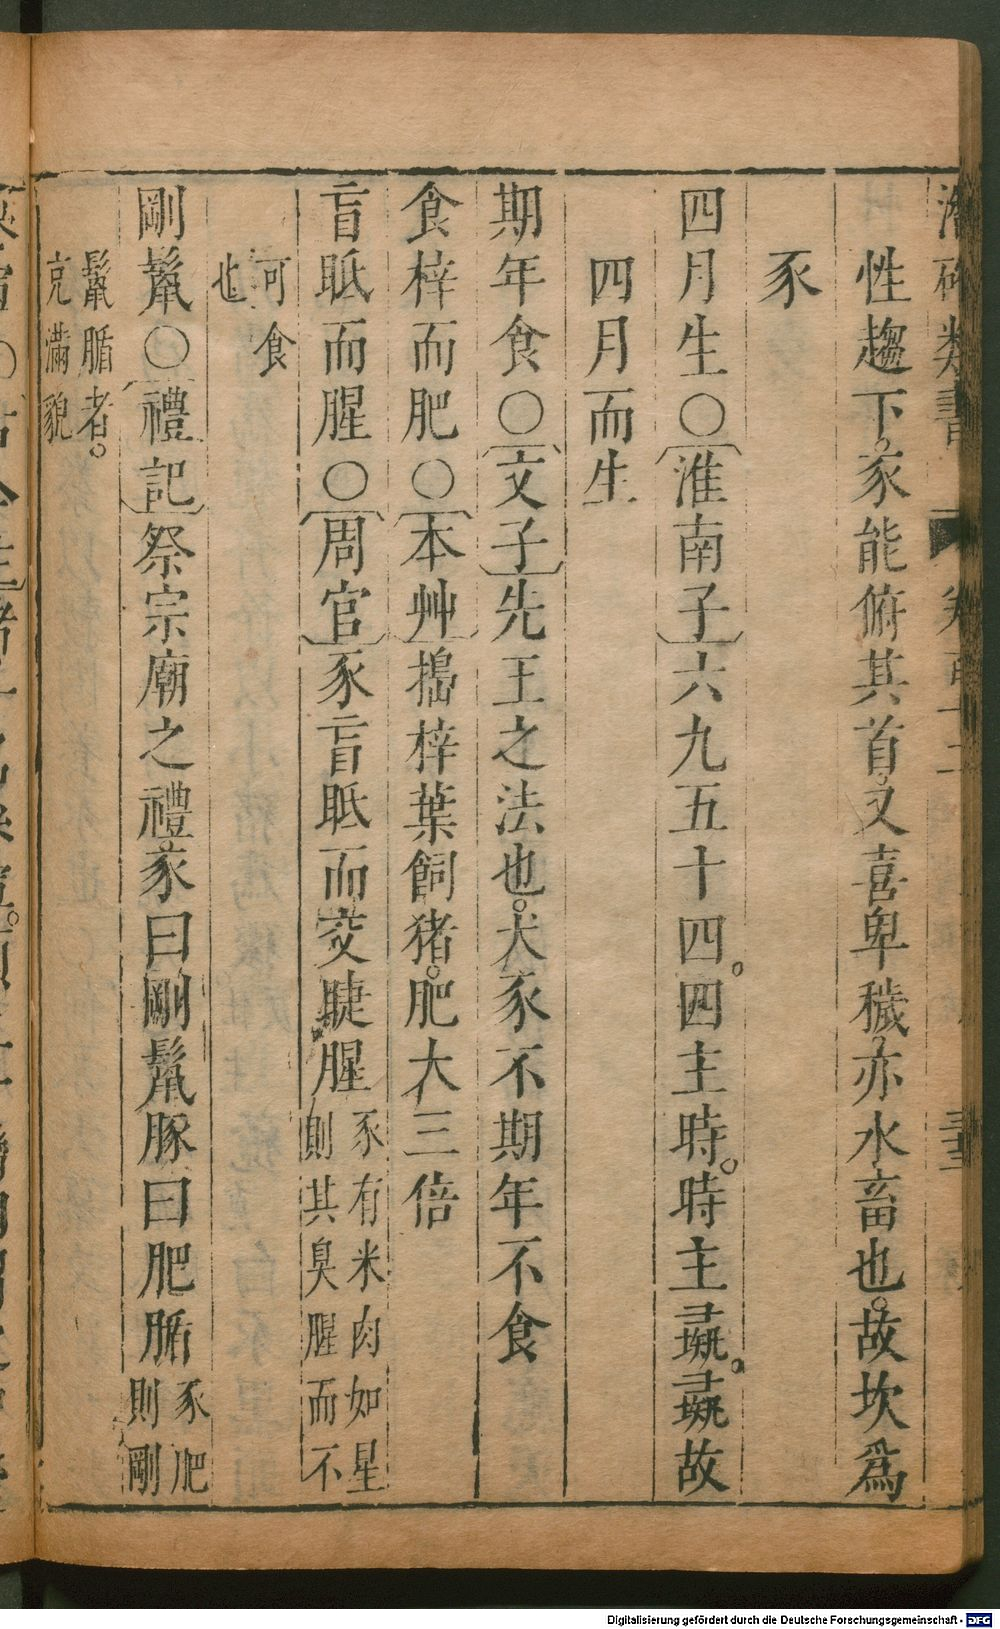 性趨下豕能俯其首又喜卑穢亦水畜也故坎爲
豕
四月生〇淮南子六九五十四四主時時主彘彘故
四月而生
期年食〇文子先王之法也犬豕不期年不食
食梓而肥〇本艸搗梓葉飼猪肥大三倍
盲眂而腥〇周官豕盲眂而交睫腥豕有米肉如星
則其臭腥而不
可食
也
剛鬣〇禮記祭宗廟之禮豕曰剛鬣豚曰肥腯豕肥
則剛
鬣腯者
充滿貌
Digitalisierung gefördert durch die Deutsche Forschungsgemeinschaft - DFG